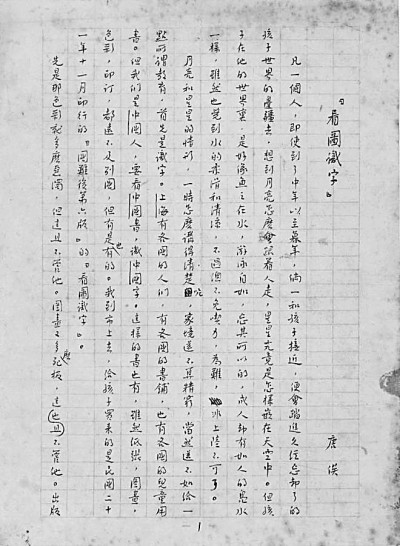 『看圖識字』
唐俟
凡一個人，即使到了中年以至暮年，倘一和孩子接近，便會踏進久經忘却了的
孩子世界的邊疆去，想到月亮怎麼會跟着人走，星星究竟是怎樣嵌在天空中。但孩
子在他的世界裏，是好像魚之在水，游泳自如，忘其所以的，成人却有如人的鳧水
一樣，雖然也覺到水的柔滑和清涼，不過總不免吃力，為難，非上陸不可了。
月亮和星星的情形，一時怎麼講得清楚呢，家境還不算精窮，當然還不如給一
點所謂教育，首先是識字。上海有各國的人們，有各國的書鋪，也有各國的兒童用
書。但我們是中國人，要看中國書，識中國字。這樣的書也有，雖然紙張，圖畫，
色彩，印訂，都遠不及別國，但有是也有的。我到市上去，給孩子買來的是民國二十
一年十一月印行的『國難後第六版』的『看圖識字』。
先是那色彩就多麼惡濁，但這且不管他。圖畫又多麼死板，這也且不管他。出版
1